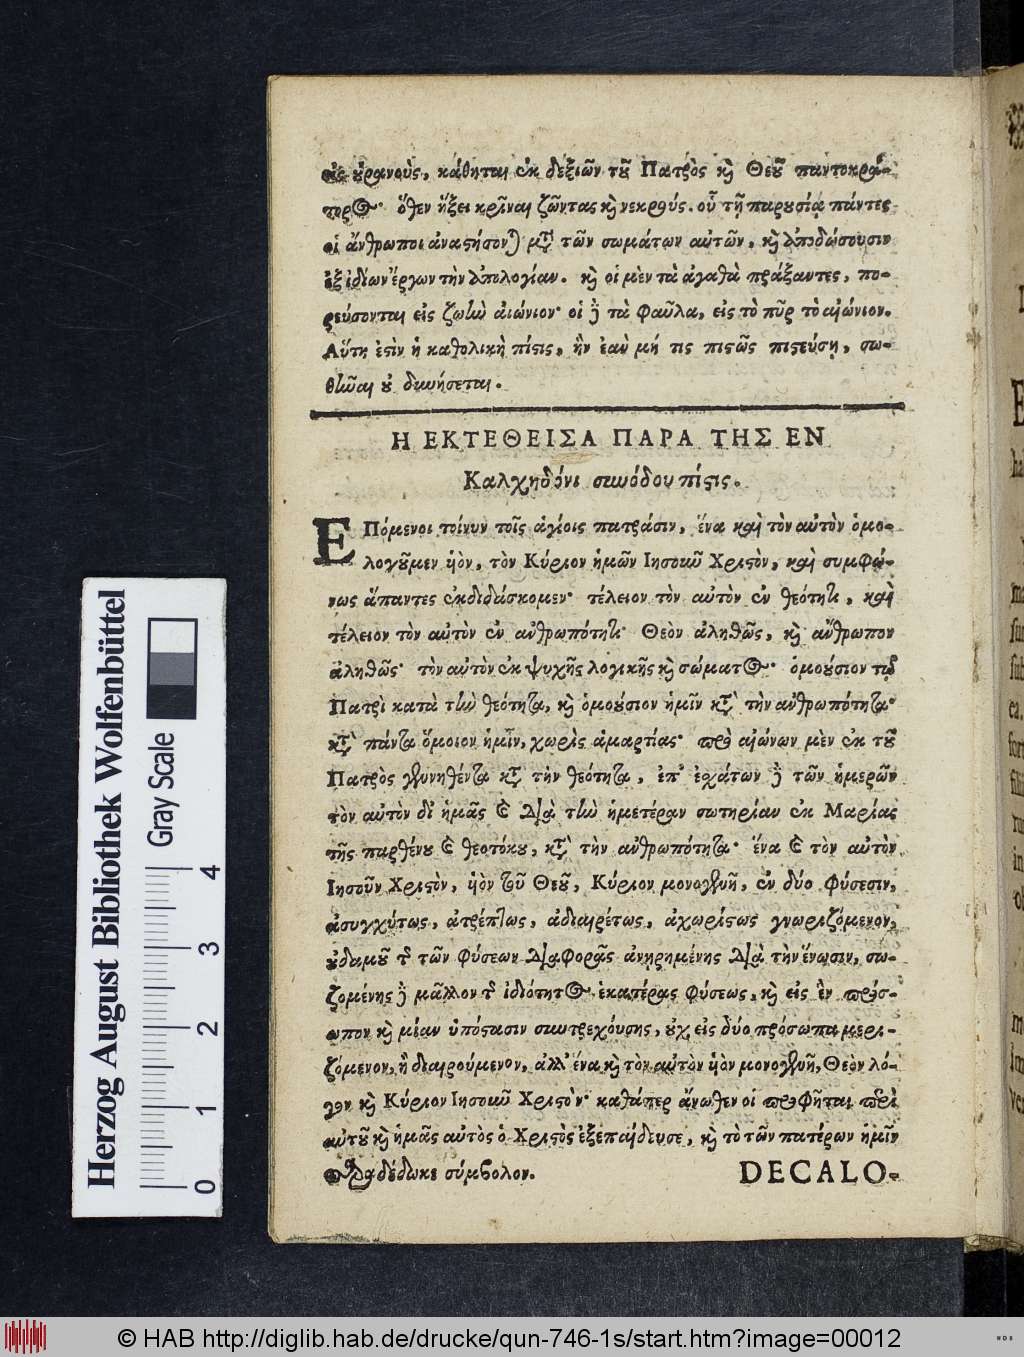 εἰς οὐρανοὺς, κάθηται ἐκ δεξιῶν τοῦ Πατρὸς καὶ Θεοῦ παντοκρά-
τορος· ὅθεν ἥξει κρῖναι ζῶντας καὶ νεκρούς. οὗ τῇ παρουσίᾳ πάντες
οἱ ἄνθρωποι ἀναστήσονται μετὰ τῶν σωμάτων αὐτῶν, καὶ ἀποδώσουσιν
ἐξ ἰδίων ἔργων τὴν ἀπολογίαν. καὶ οἱ μὲν τὰ ἀγαθὰ πράξαντες, πο-
ρεύσονται εἰς ζωὴν αἰώνιον· οἱ δὲ τὰ φαῦλα, εἰς τὸ πῦρ τὸ αἰώνιον.
Αὕτη ἐστὶν ἡ καθολικὴ πίστις, ἣν ἐὰν μή τις πιστῶς πιστεύσῃ, σω-
θῆναι οὐ δυνήσεται.
Η ΕΚΤΕΘΕΙΣΑ ΠΑΡΑ ΤΗΣ ΕΝ
Καλχηδόνι συνόδου πίστις.
ΕΠόμενοι τοίνυν τοῖς ἁγίοις πατράσιν, ἕνα καὶ τὸν αὐτὸν ὁμο-
λογοῦμεν υἱὸν, τὸν Κύριον ἡμῶν Ιησοῦν Χριστὸν, καὶ συμφώ-
νως ἅπαντες ἐκδιδάσκομεν· τέλειον τὸν αὐτὸν ἐν θεότητι, καὶ
τέλειον τὸν αὐτὸν ἐν ἀνθρωπότητι· Θεὸν ἀληθῶς, καὶ ἄνθρωπον
ἀληθῶς· τὸν αὐτὸν ἐκ ψυχῆς λογικῆς καὶ σώματος· ὁμοούσιον τῷ
Πατρὶ κατὰ τὴν θεότητα, καὶ ὁμοούσιον ἡμῖν κατὰ τὴν ἀνθρωπότητα·
κατὰ πάντα ὅμοιον ἡμῖν, χωρὶς ἁμαρτίας· πρὸ αἰώνων μὲν ἐκ τοῦ
Πατρὸς γεννηθέντα κατὰ τὴν θεότητα, ἐπ' ἐσχάτων δὲ τῶν ἡμερῶν
τὸν αὐτὸν δι' ἡμᾶς καὶ διὰ τὴν ἡμετέραν σωτηρίαν ἐκ Μαρίας
τῆς παρθένου καὶ θεοτόκου, κατὰ τὴν ἀνθρωπότητα· ἕνα καὶ τὸν αὐτὸν
Ιησοῦν Χριστὸν, υἱὸν τοῦ Θεοῦ, Κύριον μονογενῆ, ἐν δύο φύσεσιν,
ἀσυγχύτως, ἀτρέπτως, ἀδιαιρέτως, ἀχωρίστως γνωριζόμενον,
οὐδαμοῦ τῆς τῶν φύσεων διαφορᾶς ἀνῃρημένης διὰ τὴν ἕνωσιν, σω-
ζομένης δὲ μᾶλλον τῆς ἰδιότητος ἑκατέρας φύσεως, καὶ εἰς ἓν πρόσ-
ωπον καὶ μίαν ὑπόστασιν συντρεχούσης, οὐχ εἰς δύο πρόσωπα μερι-
ζόμενον, ἢ διαιρούμενον, ἀλλ' ἕνα καὶ τὸν αὐτὸν υἱὸν μονογενῆ, Θεὸν λό-
γον καὶ Κύριον Ιησοῦν Χριστὸν· καθάπερ ἄνωθεν οἱ προφῆται περὶ
αὐτοῦ καὶ ἡμᾶς αὐτὸς ὁ Χριστὸς ἐξεπαίδευσε, καὶ τὸ τῶν πατέρων ἡμῖν
παραδέδωκε σύμβολον.
DECALO-
Herzog August Bibliothek Wolfenbüttel
Gray Scale
0 1 2 3 4
© HAB http://diglib.hab.de/drucke/qun-746-1s/start.htm?image=00012